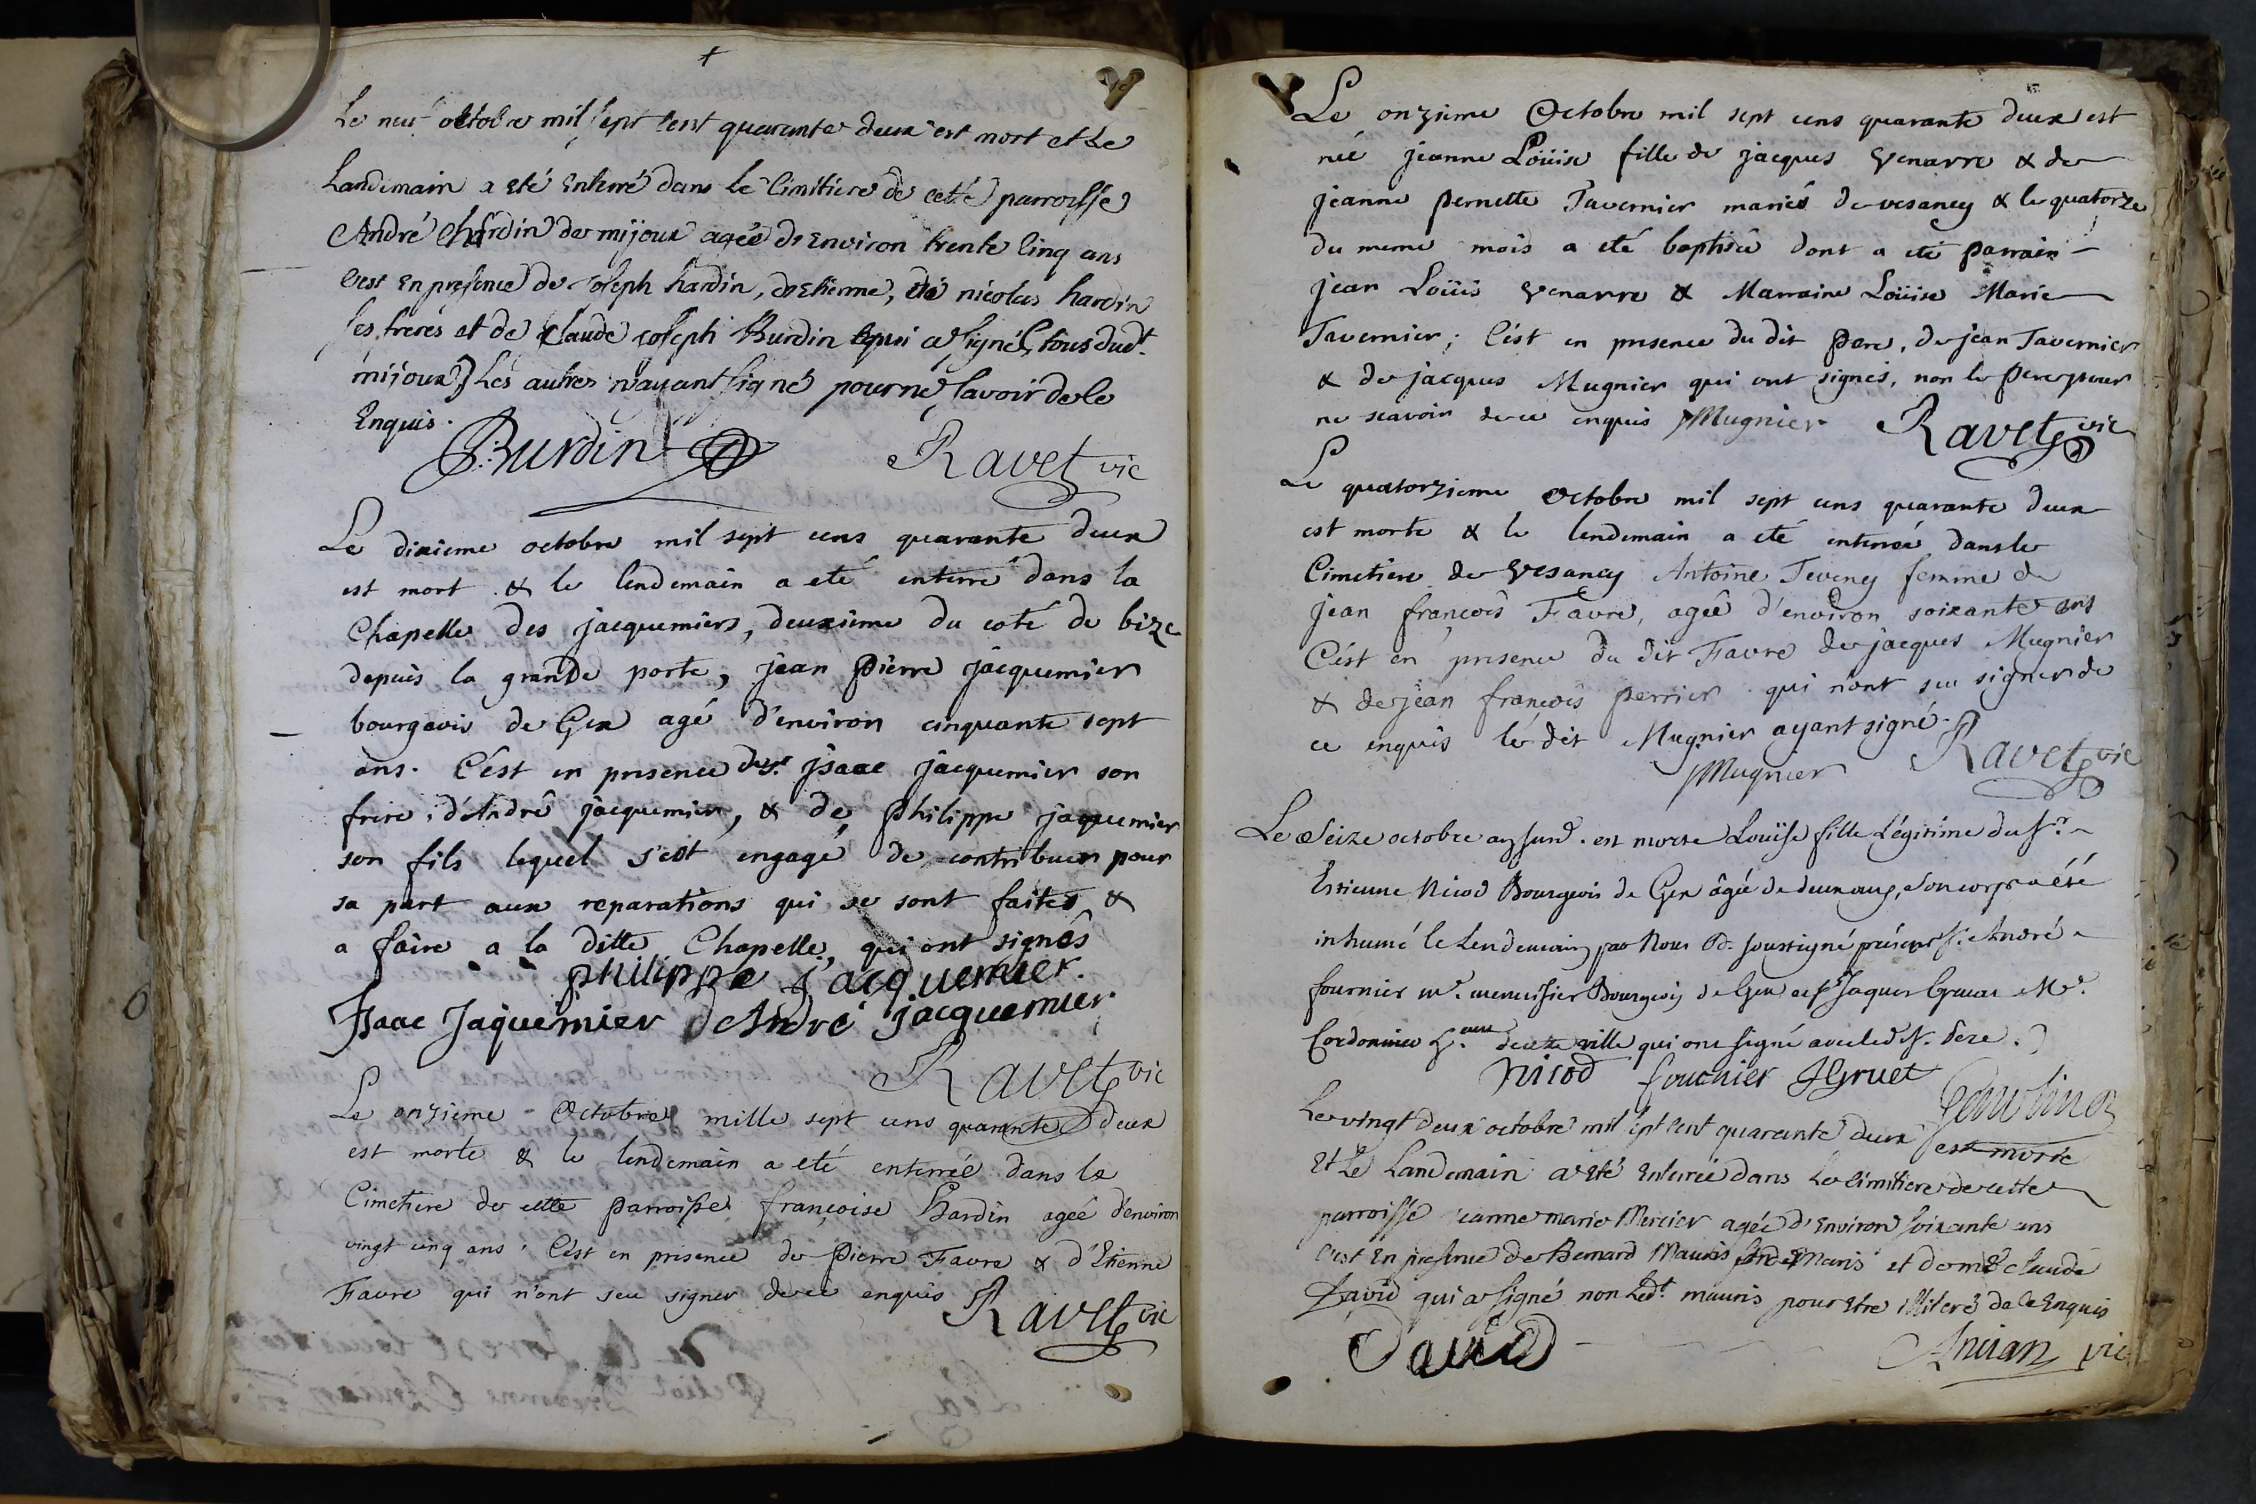 Le neuf octobre mil sept cent quarante deux est mort et Le
Landemain a eté Enterré dans le Cimitiere de cette parroisse
André Chardin de mijoux agée d'Environ trente Cinq ans
C'est En presence de Joseph hardin, d'etienne, de nicolas hardin
ses freres et de Claude Joseph Burdin qui a signé (tous dudt.
mijoux) Les autres n'ayant signé pour ne savoir de Ce
Enquis.
Burdin Ravet vic
Le dixieme octobre mil sept cens quarante deux
est mort & le lendemain a eté enterré dans la
Chapelle des jacquemiers, deuxieme du coté de bize
depuis la grande porte, jean Pierre jacquemier
bourgeois de Gex agé d'environ cinquante sept
ans. C'ést en presence du sr. jsaac jacquemier son
frere, d'André jacquemier, & de Philippe jaquemier
son fils lequel s'est engagé de contribuer pour
sa part aux reparations qui se sont faites &
a faire a la ditte Chapelle, qui ont signés
philippe jacquemier.
Isaac Jaquemier dAndré jacquemier
Ravet vic
Le onzieme Octobre mille sept cens quarante deux
est morte & le lendemain a eté enterrée dans le
Cimetiere de cette parroisse françoise Hardin ageé d'environ
vingt cinq ans. C'ést en présence de Pierre Favre & d'Etienne
Favre qui n'ont sçu signer de ce enquis
Ravet vic
Le onzieme Octobre mil sept cens quarante deux est
née jeanne Loüise fille de jacques Venarre & de
jeanne pernette Tavernier mariés de vesancy & le quatorze
du meme mois a eté baptisée dont a eté parrain
jean Loüis Venarre & Marraine Loüise Marie
Tavernier; C'ést en presence du dit Pere, de jean Tavernier
& de jacques Mugnier qui ont signés, non le Pere pour
ne scavoir de ce enquis Mugnier Ravet vic
Le quatorzieme octobre mil sept cens quarante deux
est morte & le lendemain a eté enterrée dans le
Cimetiere de Vesancy Antoine Teveney femme de
jean françois Favre, ageé d'environ soixante ans
C'ést en presence du dit Favre de jacques Mugnier
& de jean françois perrier qui n'ont sçu signer de
ce enquis le dit Mugnier ayant signé.
Mugnier Ravet vic
Le Seize octobre susd. est morte Louïse fille Légitime du sr.
Estienne Nicod Bourgeois de Gex âgée de deux ans, son corps a été
inhumé le Lendemain par Nous soussigné présens sr. André
fournier me. menuisier Bourgeois de Gex et sr. Jaques Gruet Me.
Cordonnier de cette ville qui ont signé avec led. Sr. Pere.
Nicod fournier JGruet
Le vingt deux octobre mil sept cent quarante deux est morte
Et Le Landemain a eté Enterrée dans Le Cimitiere de cette
parroisse jeanne marie Mercier agée d'Environ soixante ans
C'est En presence de Bernard Mauris son Maris et de me Claude
David qui a signé non Ledt. mauris pour Etre illiteré de Ce Enquis
David Anvian vic